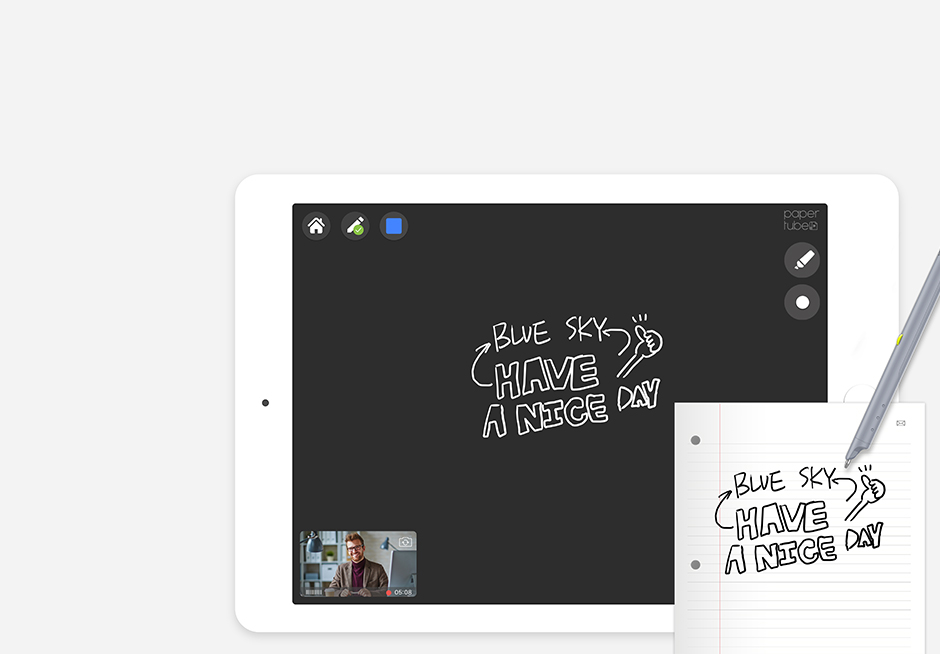 paper
tube
BLUE SKY
HAVE
A NICE DAY
05:08
BLUE SKY
HAVE
A NICE DAY